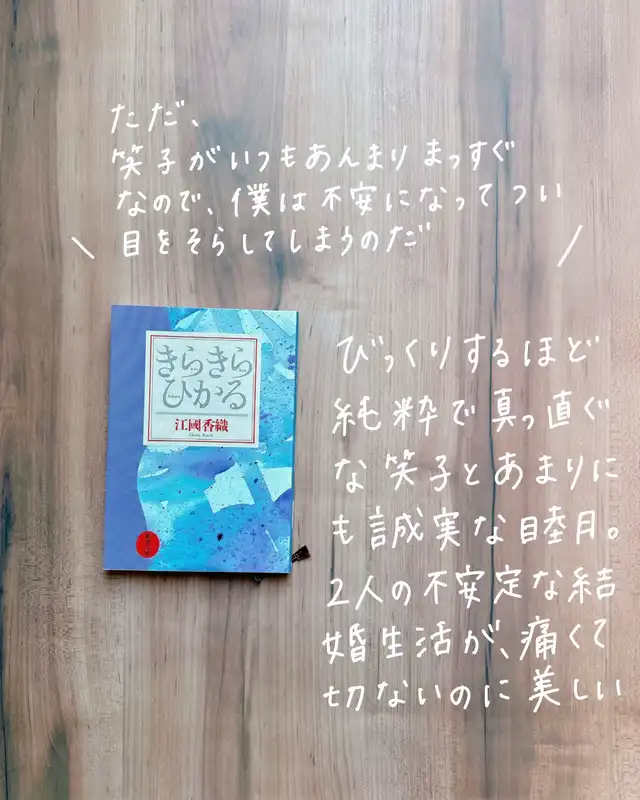 ただ、
笑子がいつもあんまりまっすぐ
なので、僕は不安になってつい
目をそらしてしまうのだ
きらきら
ひかる
江國香織
びっくりするほど
純粋で真っ直ぐ
な笑子とあまりに
も誠実な睦月。
2人の不安定な結
婚生活が、痛くて
切ないのに美しい